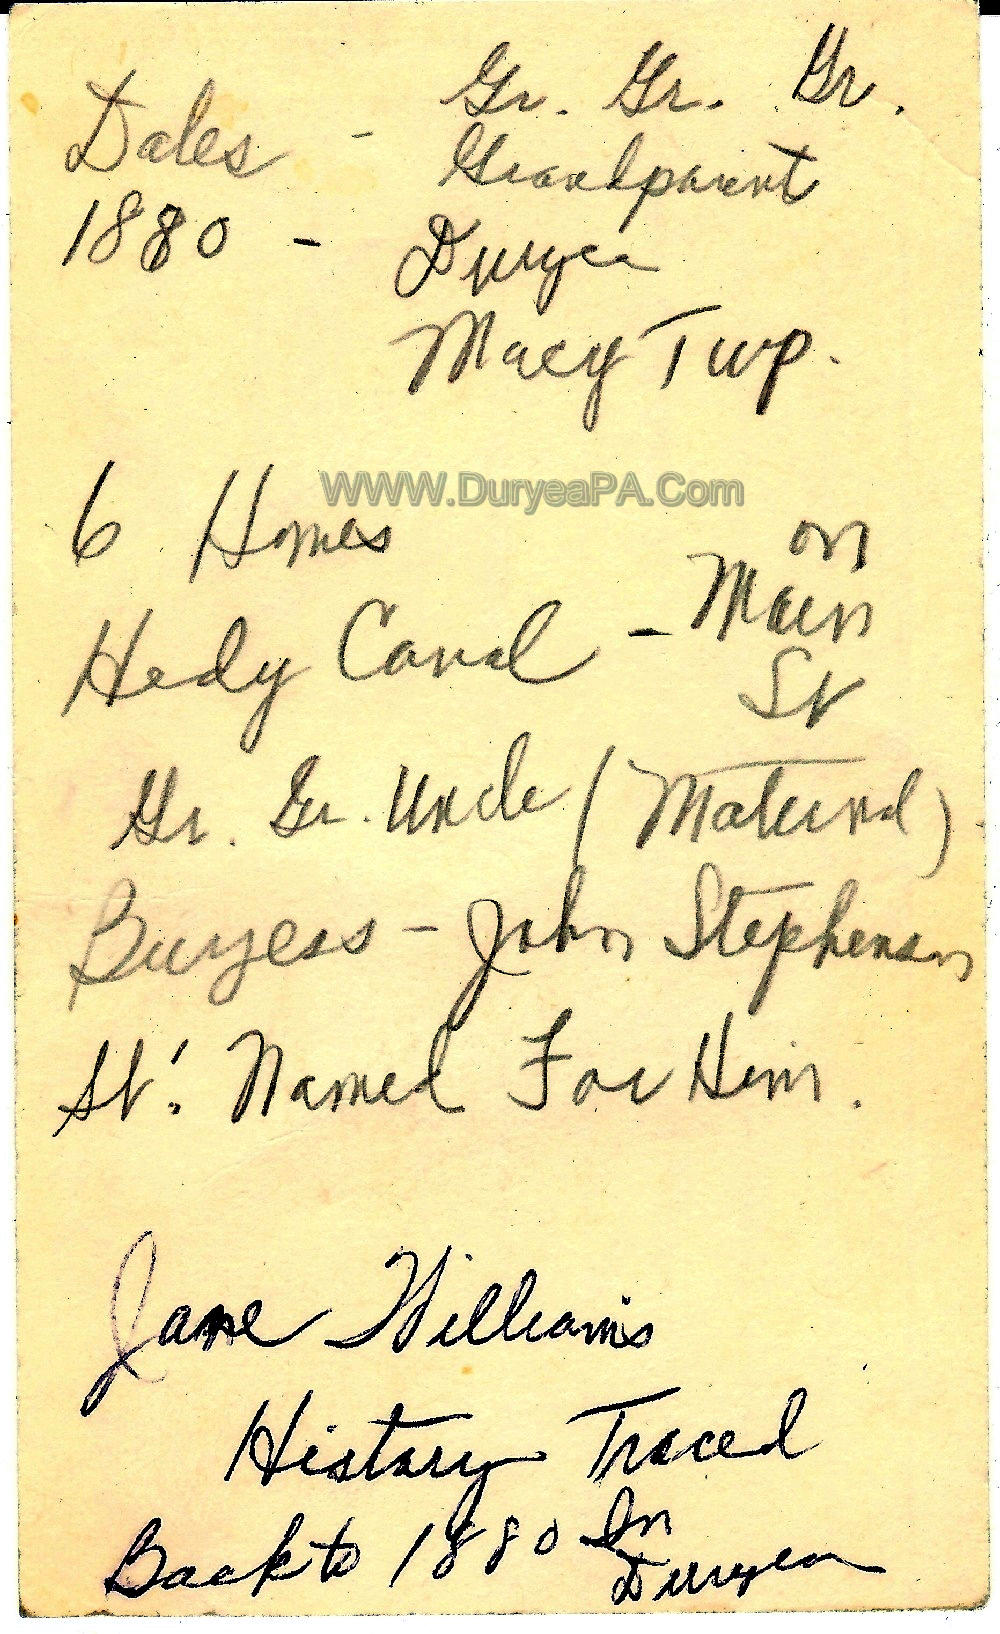 Dales - Gr. Gr. Gr.
Grandparent
1880 - Duryea
Marcy Twp.
WWW.DuryeaPA.Com
6 Homes
on
Hedy Canal - Main
St
Gr. Gr. Uncle (Maternal)
Burgess - John Stephenson
St. Named For Him.
Jane Williams
History Traced
Back to 1880 In
Duryea